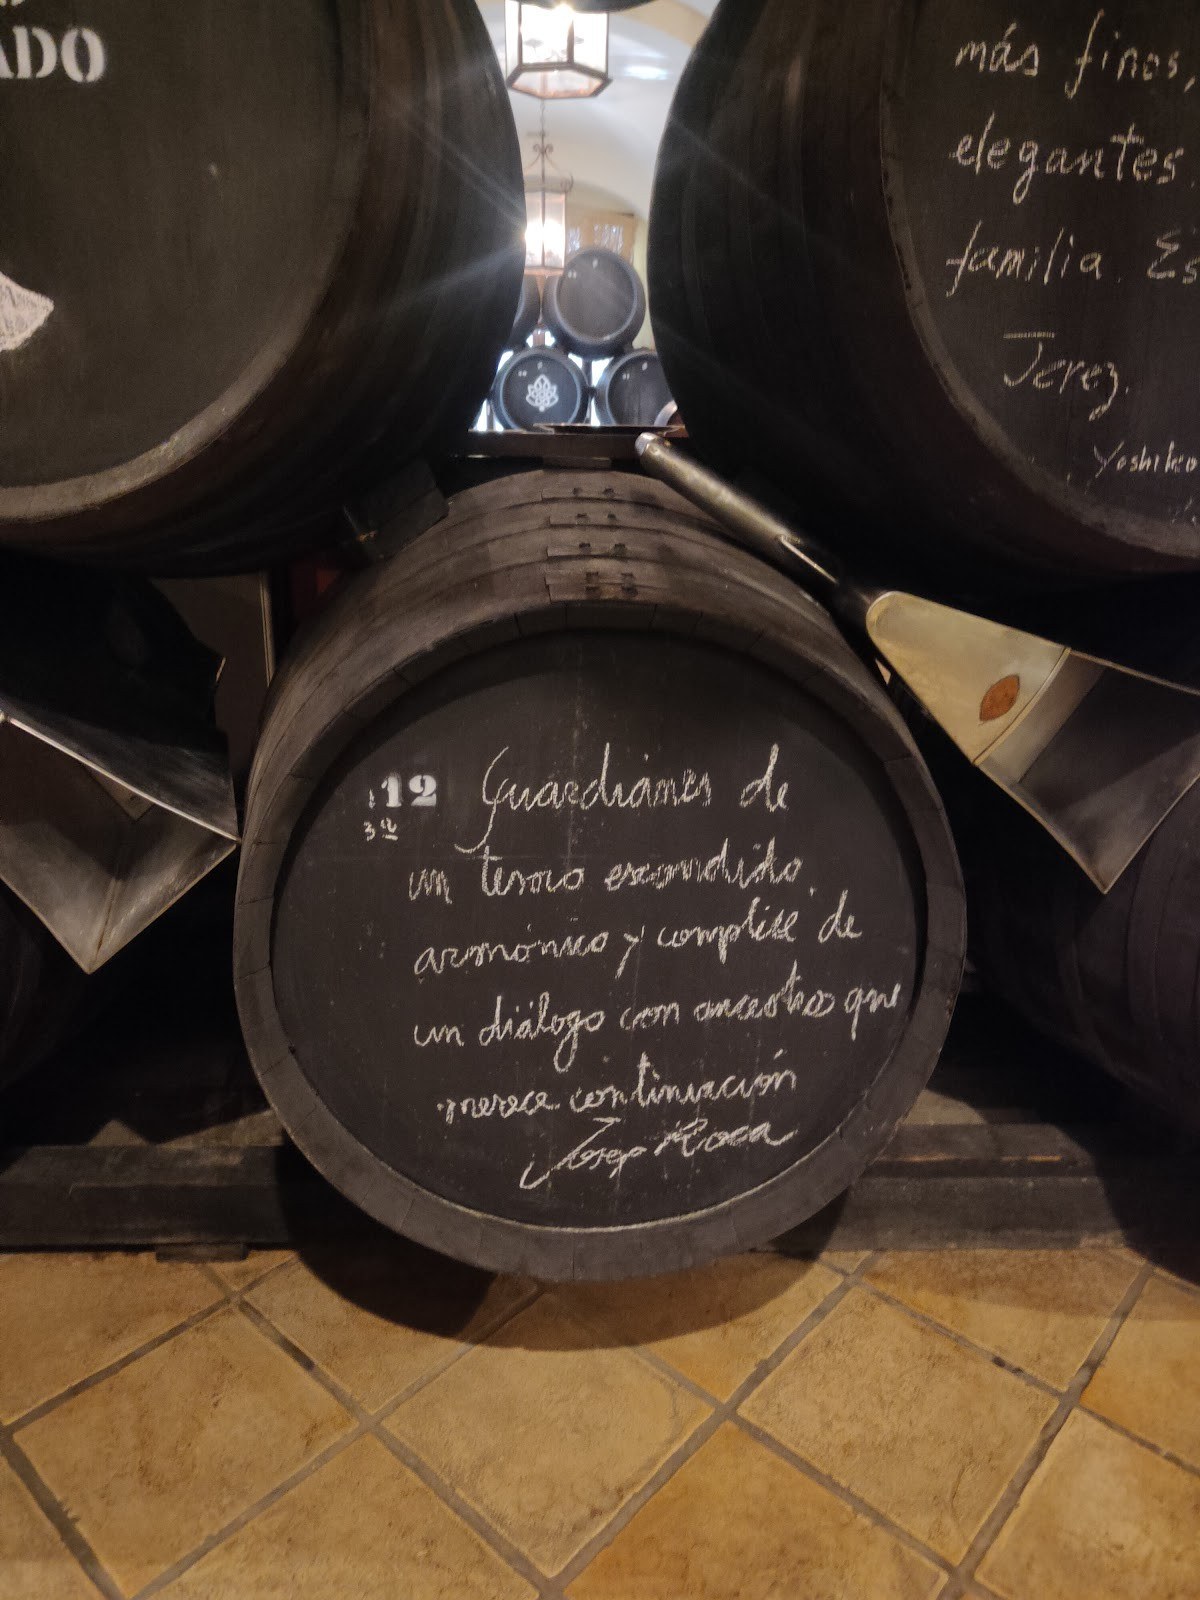 ADO
más finos,
elegantes.
familia. Es
Jerez.
Yoshiko
112
3ª
Guardianes de
un tesoro escondido,
armónico y complice de
un diálogo con ancestros que
merece continuación
Josep Roca